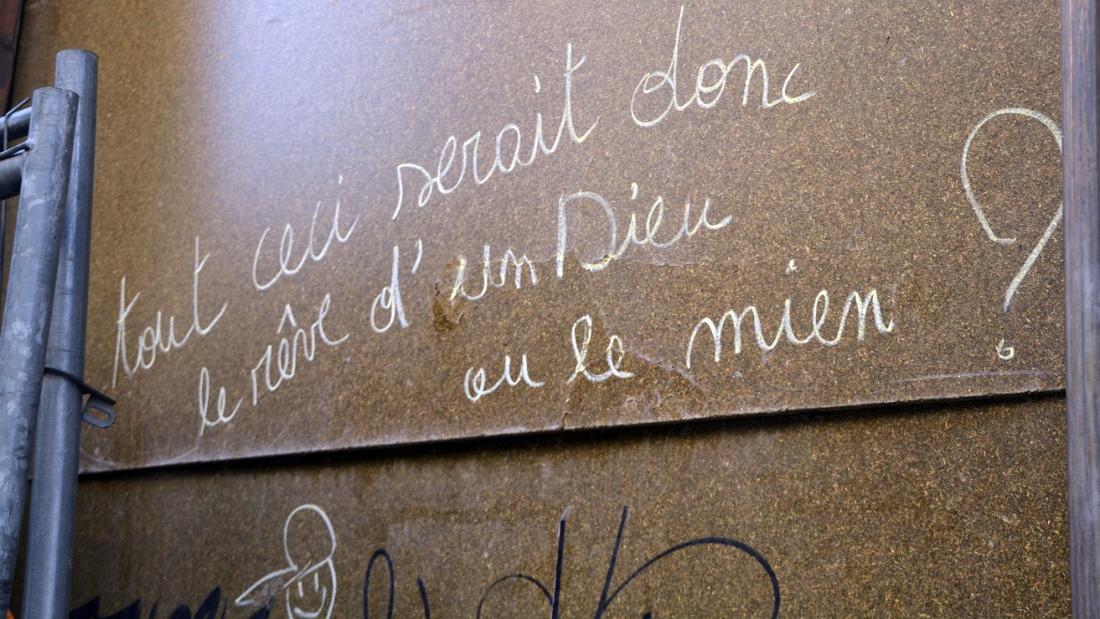 tout ceci serait donc
le rêve d'un Dieu
ou le mien ?